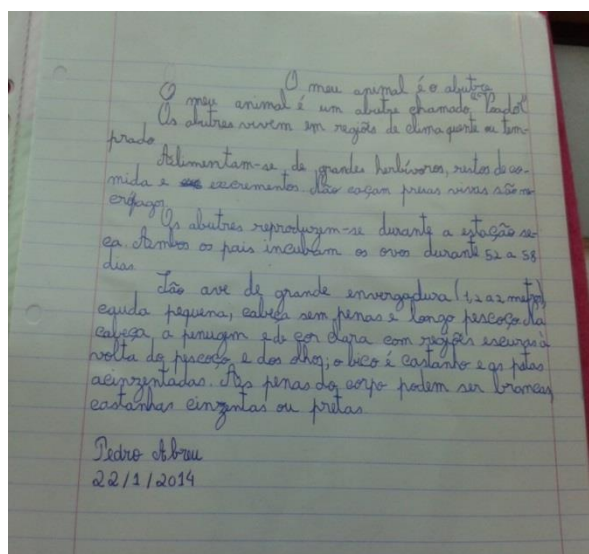 O meu animal é o abutre
O meu animal é um abutre chamado "Voador"
Os abutres vivem em regiões de clima quente ou tem-
prado.
Alimentam-se de grandes herbívoros, restos de co-
mida e excrementos. Não caçam presas vivas são n
ecrófagos
Os abutres reproduzem-se durante a estação se-
ca. Ambos os pais incubam os ovos durante 52 a 58
dias.
São ave de grande envergadura (1,2 a 2 metros)
cauda pequena, cabeça sem penas e longo pescoço. Na
cabeça, a penugem e de cor clara com regiões escuras à
volta do pescoço e dos olhos; o bico é castanho e as patas
acinzentadas. As penas do corpo podem ser brancas,
castanhas cinzentas ou pretas.
Pedro Abreu
22/1/2014